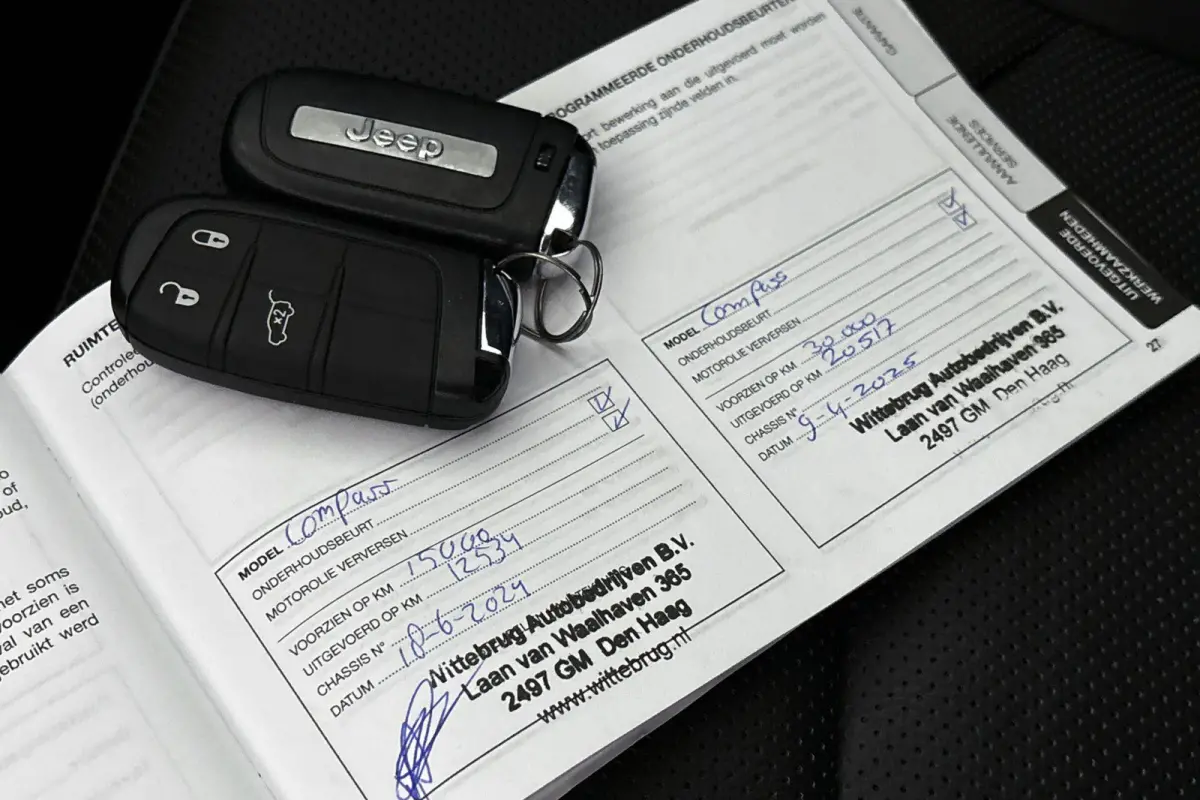 Jeep
x2
ROGRAMMEERDE ONDERHOUDSBEURTEN
ort bewerking aan die uitgevoerd moet worden
toepassing zijnde velden in.
GARANTIE
AANVULLENDE
SERVICES
UITGEVOERDE
WERKZAAMHEDEN
RUIMTE
Controlee
(onderhou
of
oud,
net soms
voorzien is
val van een
ebruikt werd
MODEL Compass
ONDERHOUDSBEURT
MOTOROLIE VERVERSEN
VOORZIEN OP KM 15000
UITGEVOERD OP KM 12534
CHASSIS N°
DATUM 18-6-2024
Wittebrug Autobedrijven B.V.
Laan van Waalhaven 365
2497 GM Den Haag
www.wittebrug.nl
MODEL Compass
ONDERHOUDSBEURT
MOTOROLIE VERVERSEN
VOORZIEN OP KM 30.000
UITGEVOERD OP KM 20517
CHASSIS N°
DATUM 9-4-2025
Wittebrug Autobedrijven B.V.
Laan van Waalhaven 365
2497 GM Den Haag
27